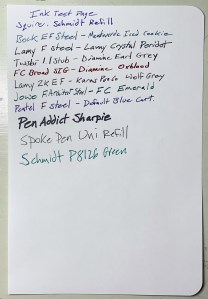 Ink Test Page
Squire: Schmidt Refill
Beck EF Steel - Meadowside Iced Cookie
Lamy F steel - Lamy Crystal Peridot
Twsbi 1.1 Stub - Diamine Earl Grey
FC Broad SIG - Diamine Oxblood
Lamy 2K EF - Karas Wolf Grey
Jowo F Steel - FC Emerald
Pentel F Steel - Default Blue Cart.
Pen Addict Sharpie
Spoke Pen Uni Refill
Schmidt P8126 Green